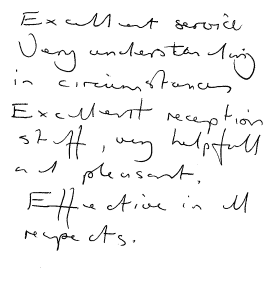 Excellent service
Very understanding
in circumstances
Excellent reception
staff, very helpfull
and pleasant.
Effective in all
respects.